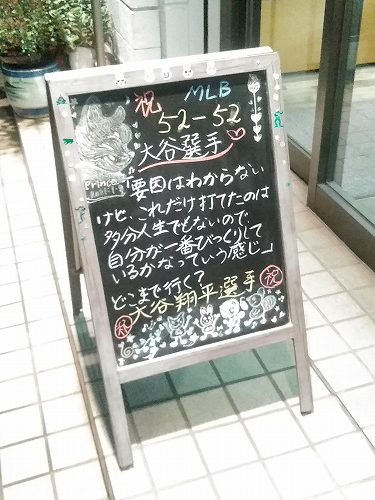 祝 MLB
52-52
大谷選手
Prince
「要因はわからない
けど、これだけ打てたのは
多分人生でもないので、
自分が一番びっくりして
いるかなっていう感じ」
どこまで行く?
大谷翔平選手 祝
祝